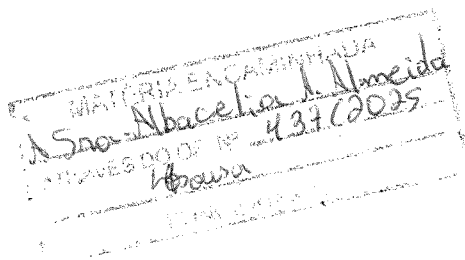 MATÉRIA ENCAMINHADA
A Sra. Abacelia A. Almeida
ATRAVES DO OF Nº 437/2025